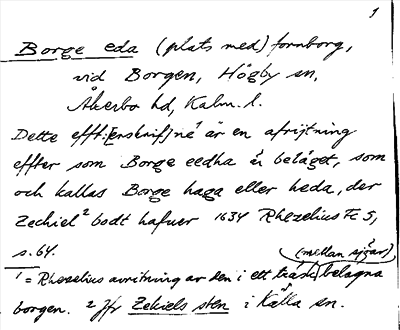 1
Borge eda (plats med) fornborg,
vid Borgen, Högby sn,
Åkerbo hd, Kalm. l.
Dette efft:[erskrif]ne¹ är en afrijtning
effter som Borge eedha är beläget, som
och kallas Borge haga eller heda, der
Zechiel² bodt hafuer 1634 Rhezelius Fc 5,
s. 64.
(mellan sjöar)
1 = Rhezelius avritning av den i ett träsk belägna
borgen. ² Jfr Zekiels sten i Källa sn.